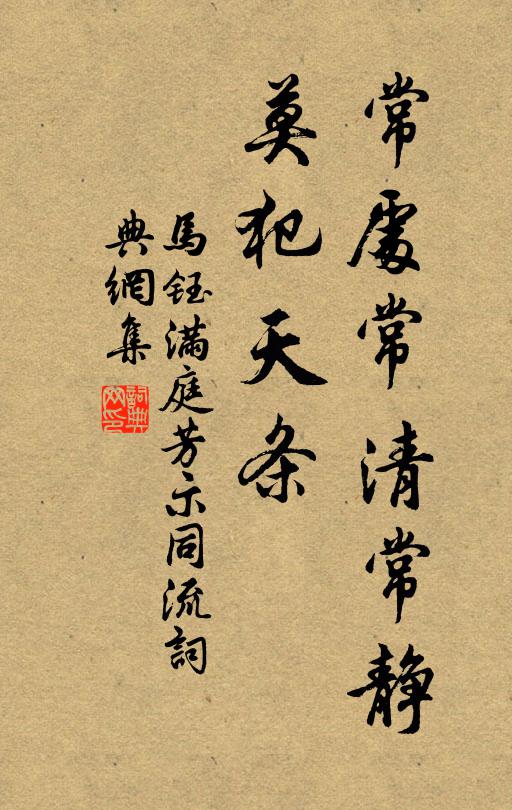 常處常清常静
莫犯天条
馬鈺滿庭芳示同流詞
典網集
詞典
网印